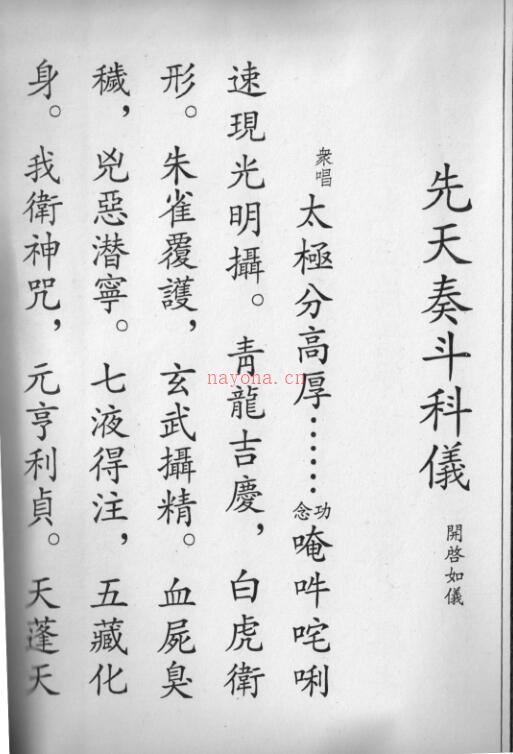 先天奏斗科儀 開啓如儀
衆唱 太極分高厚⋯⋯ 功念 唵吽咤唎
速現光明攝。青龍吉慶，白虎衛
形。朱雀覆護，玄武攝精。血屍臭
穢，兇惡潛寧。七液得注，五藏化
身。我衛神咒，元亨利貞。天蓬天
nayona.cn